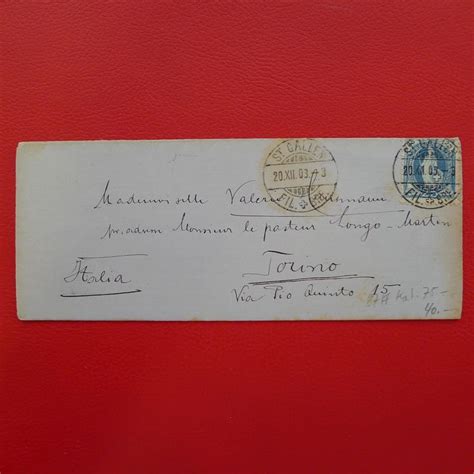 ST. GALLEN
20.XII.03.-3
FIL.
ST. GALLEN
20.XII.03.-3
FIL.
Mademoiselle Valerie
Monsieur le pasteur Longo-Martin
Torino
Italia
Via Pio Quinto 15
75.-
40.-